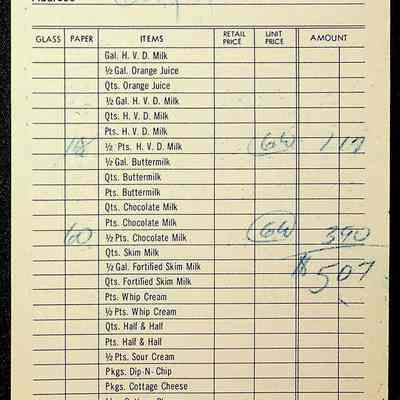 GLASS PAPER ITEMS RETAIL PRICE UNIT PRICE AMOUNT
Gal. H. V. D. Milk
½ Gal. Orange Juice
Qts. Orange Juice
½ Gal. H. V. D. Milk
Qts. H. V. D. Milk
Pts. H. V. D. Milk
18 ½ Pts. H. V. D. Milk 6½ 117
½ Gal. Buttermilk
Qts. Buttermilk
Pts. Buttermilk
Qts. Chocolate Milk
Pts. Chocolate Milk
60 ½ Pts. Chocolate Milk 6½ 390
Qts. Skim Milk
½ Gal. Fortified Skim Milk $507
Qts. Fortified Skim Milk
Pts. Whip Cream
½ Pts. Whip Cream
Qts. Half & Half
Pts. Half & Half
½ Pts. Sour Cream
Pkgs. Dip-N-Chip
Pkgs. Cottage Cheese